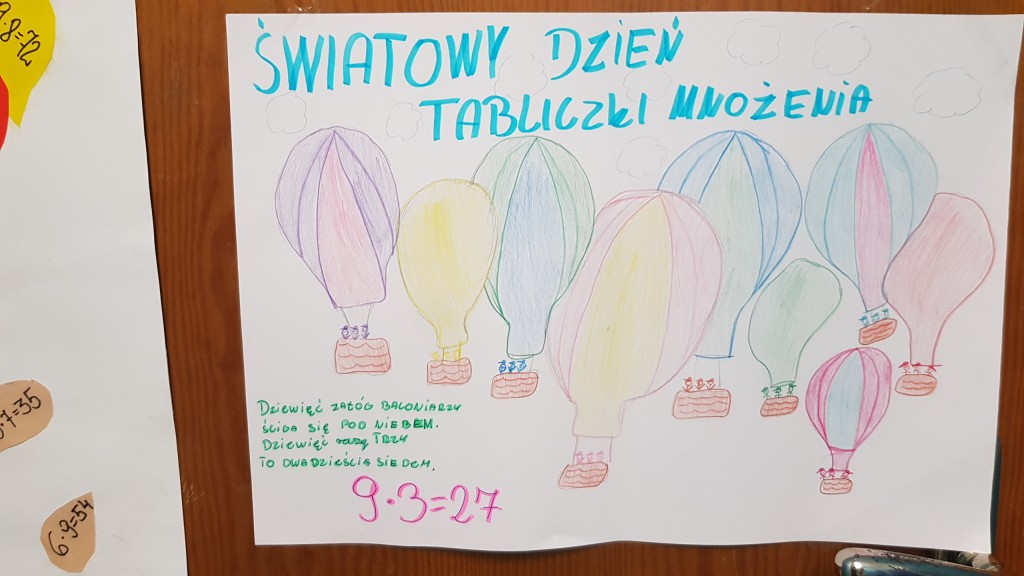 9·8=72
ŚWIATOWY DZIEŃ
TABLICZKI MNOŻENIA
DZIEWIĘĆ ZAŁÓG BALONIARZY
ŚCIGA SIĘ POD NIEBEM.
DZIEWIĘĆ razy TRZY
TO DWADZIEŚCIA SIEDEM.
9·3=27
·7=35
6·9=54